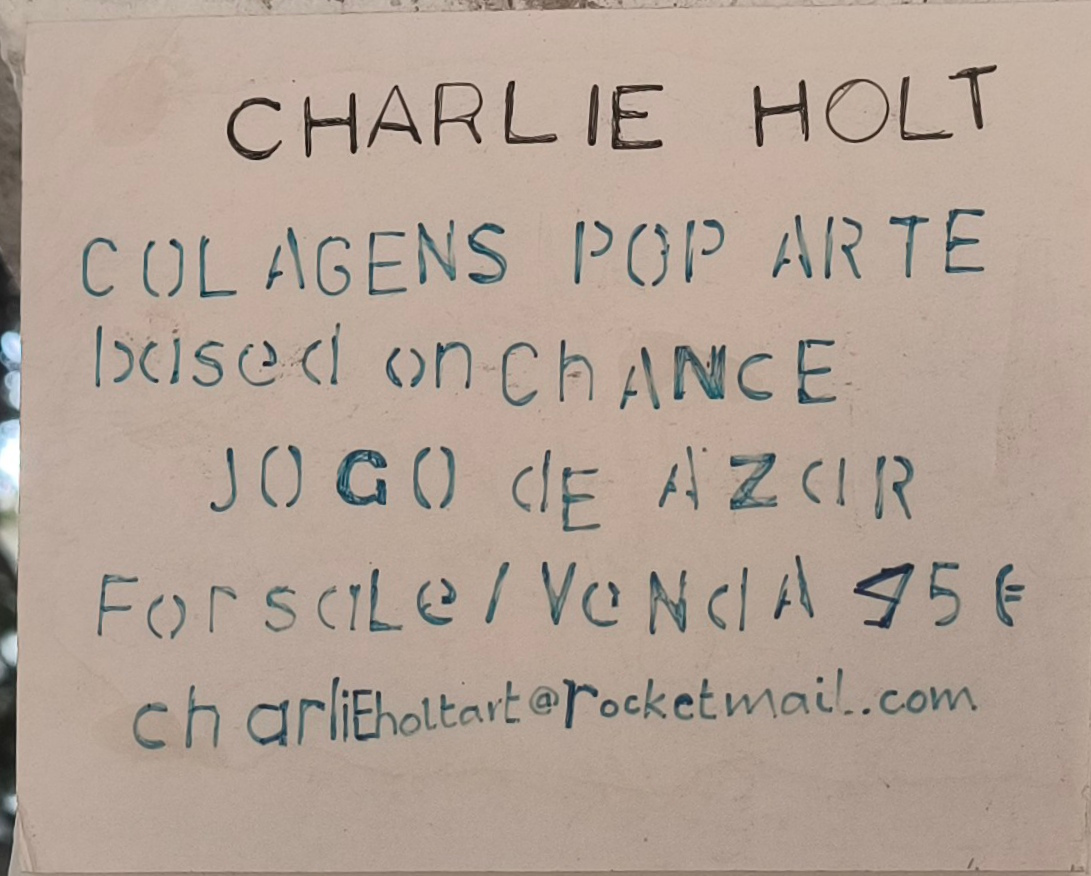 CHARLIE HOLT
COLAGENS POP ARTE
based on ChANCE
JOGO dE AZaR
For saLe / VeNdA 45€
charliEholtart@rocketmail.com